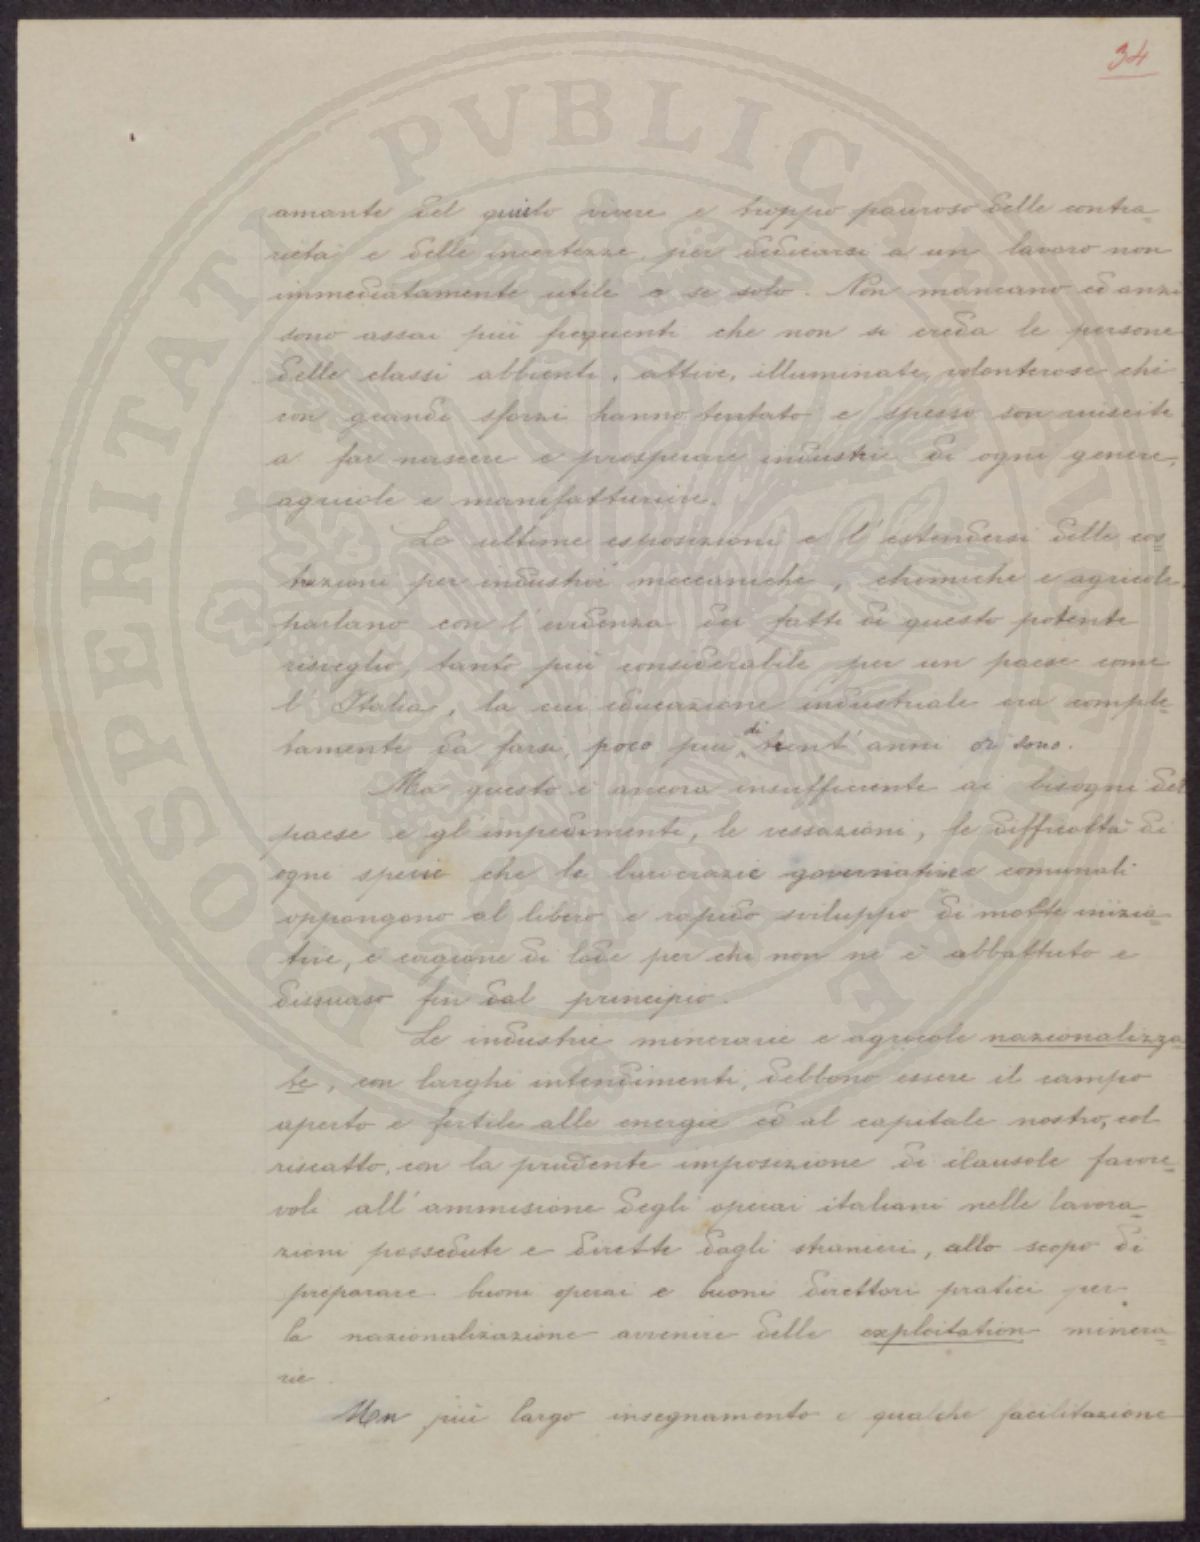 34
amante del quieto vivere e troppo pauroso delle contra=
rietà e delle incertezze, per dedicarsi a un lavoro non
immediatamente utile a se solo. Non mancano ed anzi
sono assai più frequenti che non si creda le persone
delle classi abbienti, attive, illuminate, volonterose chi
con grandi sforzi hanno tentato e spesso son riuscite
a far nascere e prosperare industrie di ogni genere,
agricole e manifatturiere.
Le ultime esposizioni e l'estendersi delle cos=
truzioni per industrie meccaniche, chimiche e agricole
parlano con l'evidenza dei fatti di questo potente
risveglio, tanto più considerabile per un paese come
l'Italia, la cui educazione industriale era comple=
tamente da farsi, poco più di trent'anni or sono.
Ma questo è ancora insufficiente ai bisogni del
paese e gl'impedimenti, le vessazioni, le difficoltà di
ogni specie che le burocrazie governative e comunali
oppongono al libero e rapido sviluppo di molte inizia=
tive, è cagione di lode per chi non ne è abbattuto e
dissuaso fin dal principio.
Le industrie minerarie e agricole nazionalizza=
te, con larghi intendimenti, debbono essere il campo
aperto e fertile alle energie ed al capitale nostro, col
riscatto, con la prudente imposizione di clausole favore=
voli all'ammisione degli operai italiani nelle lavora=
zioni possedute e dirette dagli stranieri, allo scopo di
preparare buoni operai e buoni direttori pratici per
la nazionalizazione avvenire delle exploitation minera=
rie.
Un più largo insegnamento e qualche facilitazione
PROSPERITATI PVBLICAE VINDICANDAE